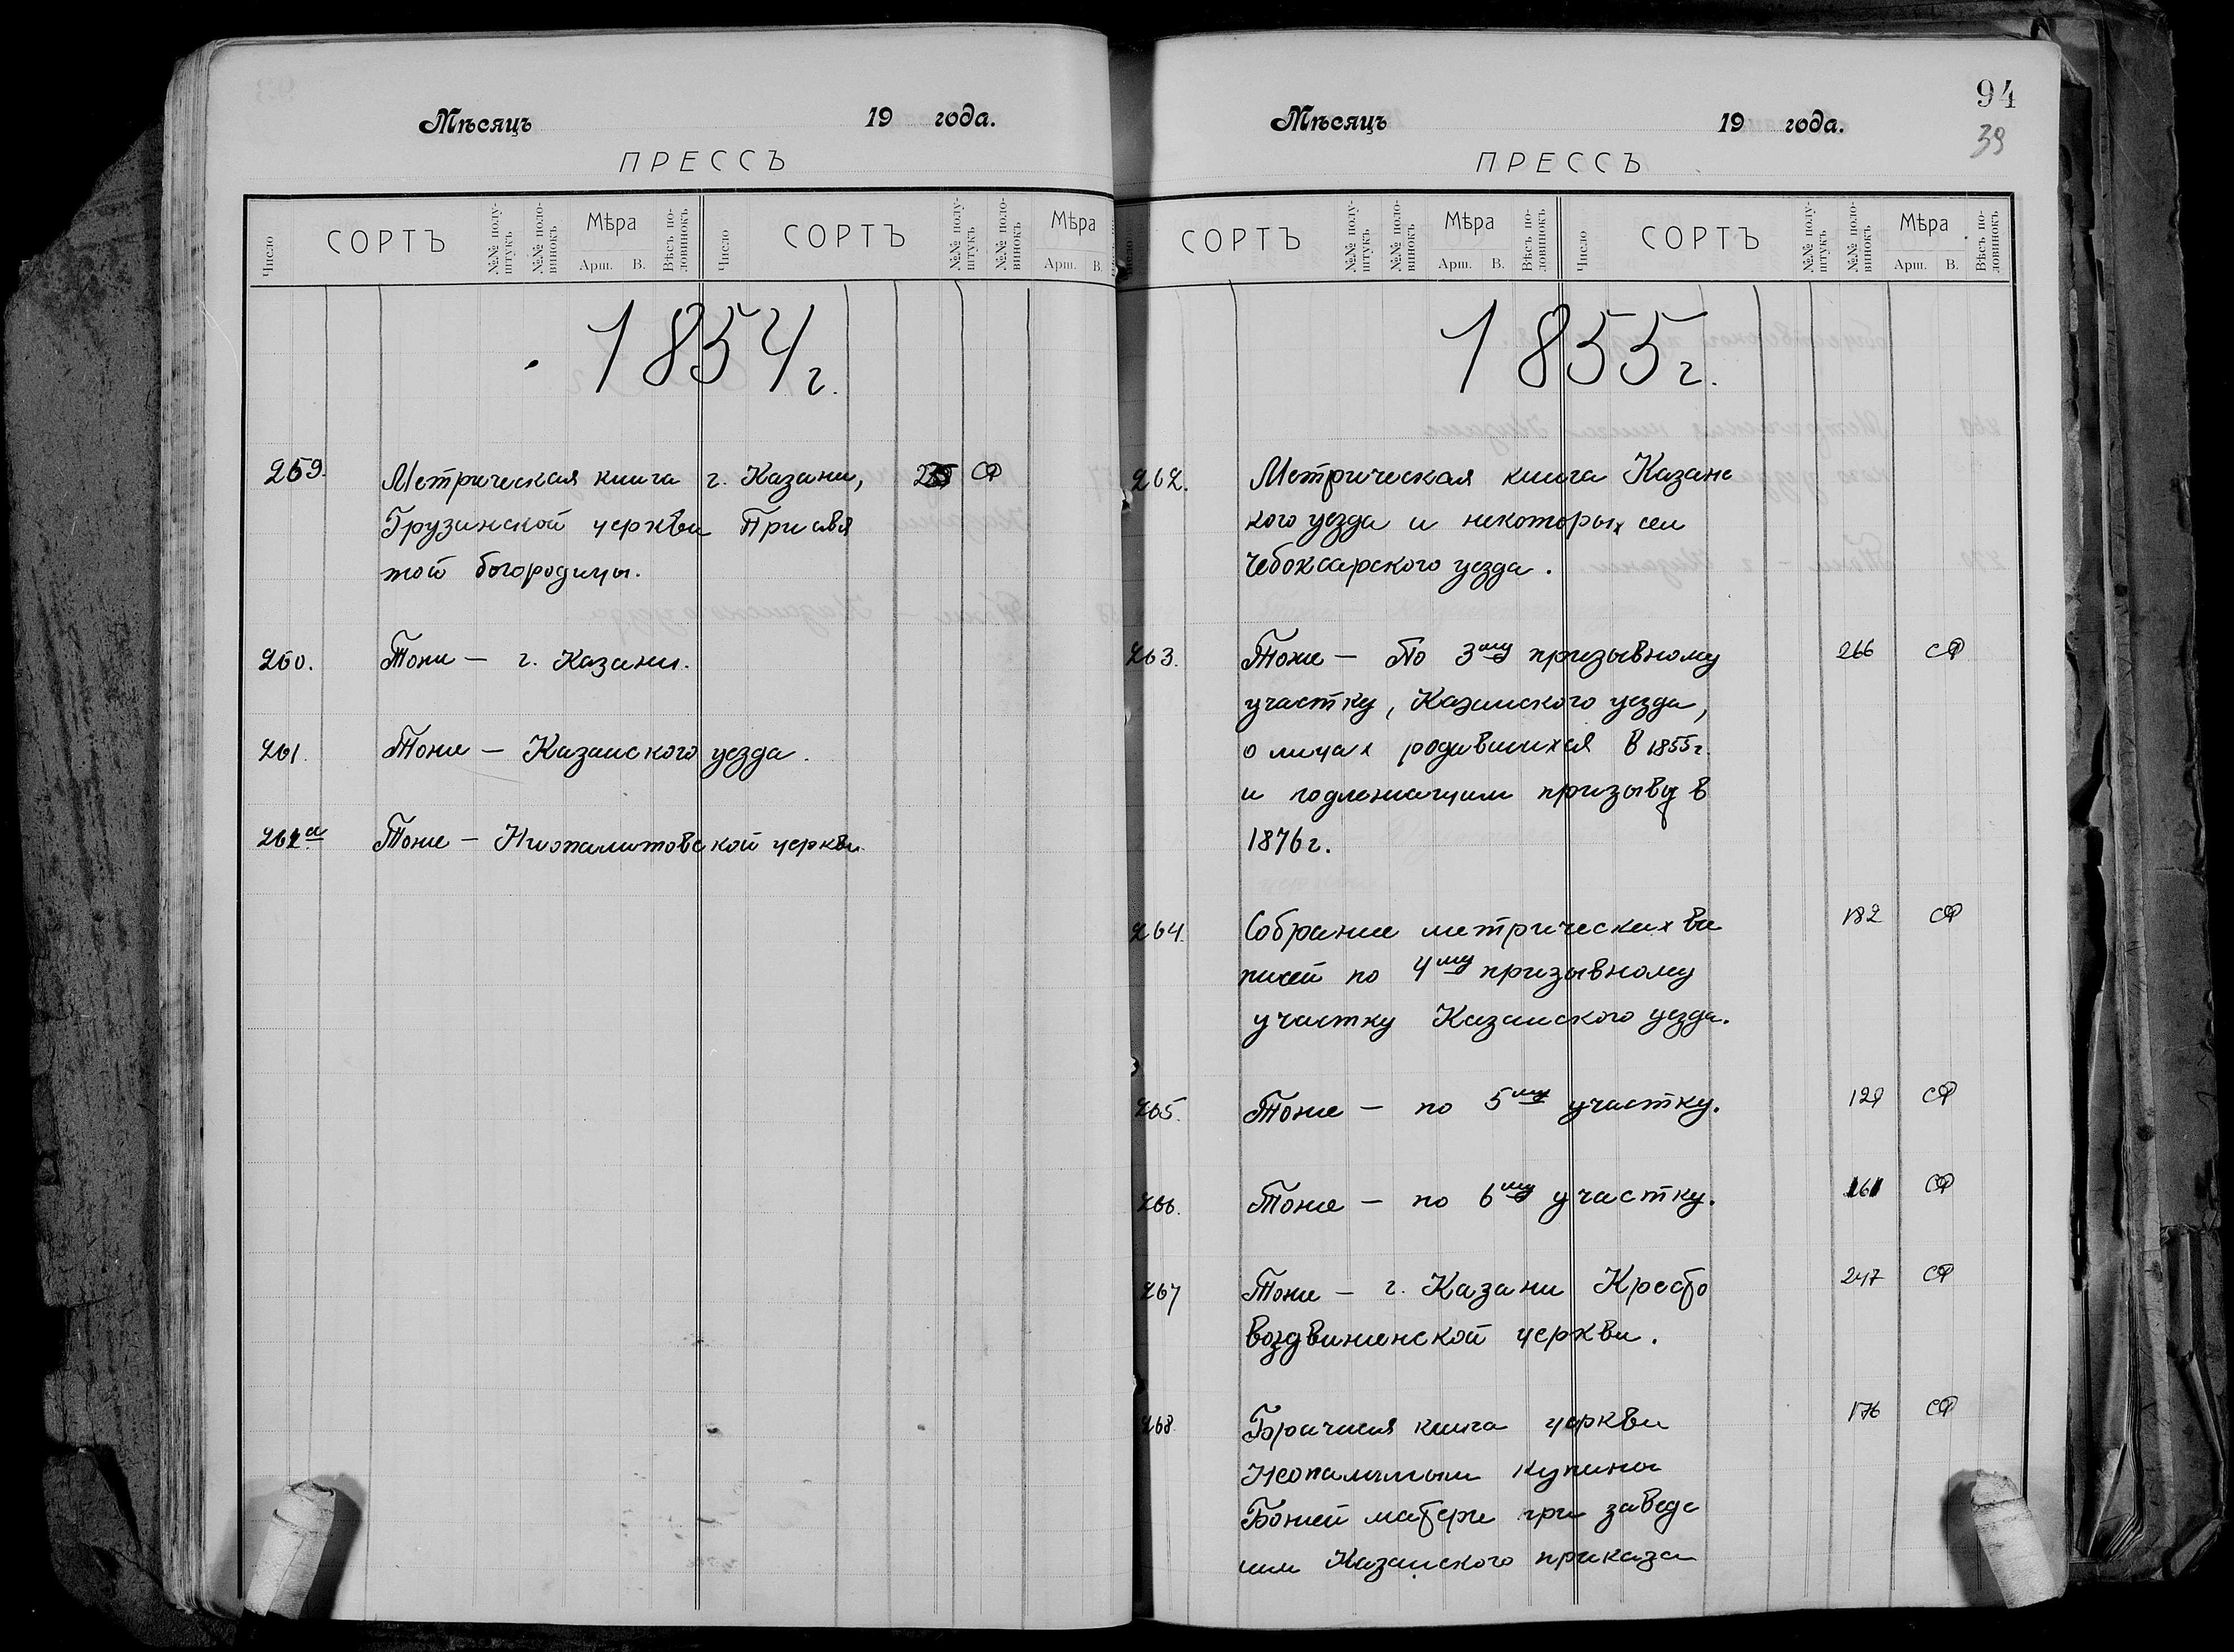 Мѣсяцъ 19 года.
ПРЕССЪ
Число СОРТЪ №№ полу-штукъ №№ поло-винокъ Мѣра Арш. В. Вѣсъ по-ловинокъ Число СОРТЪ №№ полу-штукъ №№ поло-винокъ Мѣра Арш. В.
1854 г.
259. Метрическая книга г. Казани, СФ
Грузинской церкви Присвя
той богородицы.
260. Тоже — г. Казани.
261. Тоже — Казанского уезда.
261а Тоже — церкви
94
39
Мѣсяцъ 19 года.
ПРЕССЪ
Число СОРТЪ №№ полу-штукъ №№ поло-винокъ Мѣра Арш. В. Вѣсъ по-ловинокъ Число СОРТЪ №№ полу-штукъ №№ поло-винокъ Мѣра Арш. В. Вѣсъ по-ловинокъ
1855 г.
262. Метрическая книга Казанс
кого уезда и некоторых сел
Чебоксарского уезда.
263. Тоже — По 3му призывному 266 СФ
участку, Казанского уезда,
о лицах родившихся в 1855 г.
и подлежащим призыву в
1876 г.
264. Собрание метрических вы 182 СФ
писей по 4му призывному
участку Казанского уезда.
265. Тоже — по 5му участку. 129 СФ
266. Тоже — по 6му участку. 161 СФ
267 Тоже — г. Казани Кресто 247 СФ
воздвиженской церкви.
268 Брачная книга церкви 176 СФ
Неопалимыи купины
Божией матери при заведе
нии Казанского приказа